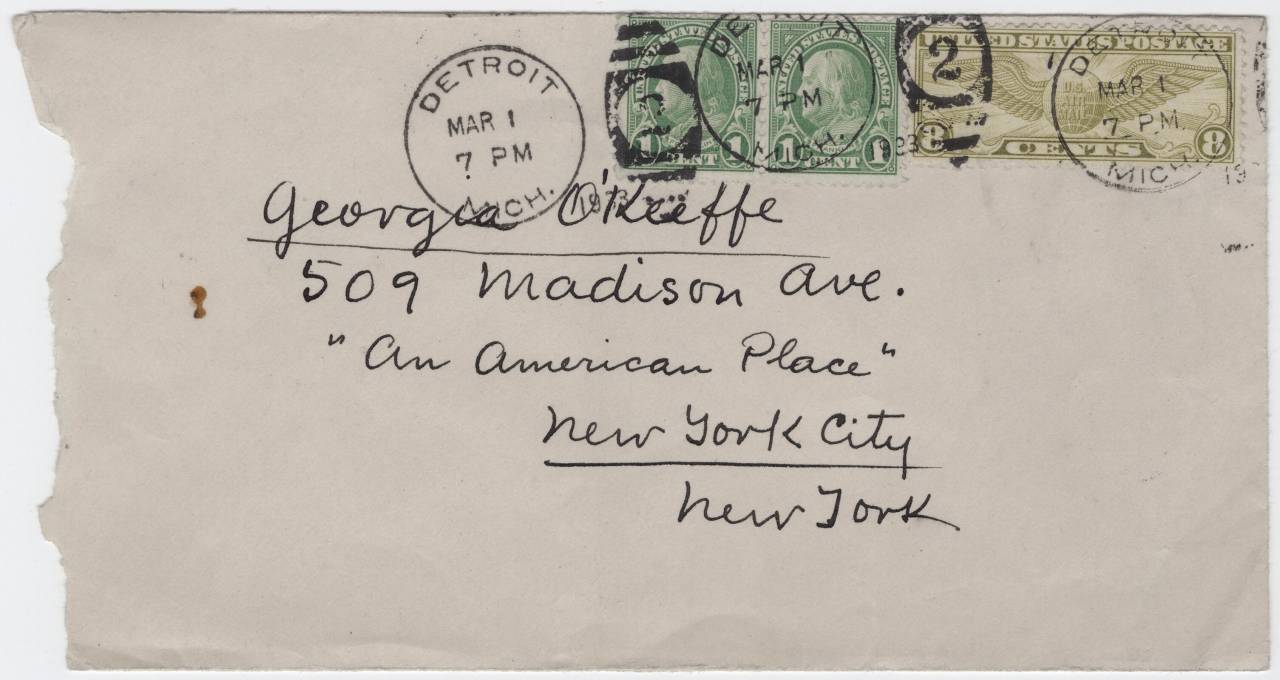 DETROIT
MAR 1
7 PM
MICH.
UNITED STATES POSTAGE
1 CENT 1
DETROIT
MAR 1
7 PM
MICH.
UNITED STATES POSTAGE
1 CENT 1
2
UNITED STATES POSTAGE
U.S.
AIR
MAIL
8 CENTS 8
DETROIT
MAR 1
7 PM.
MICH.
Georgia O'Keeffe
509 Madison Ave.
"An American Place"
New York City
New York